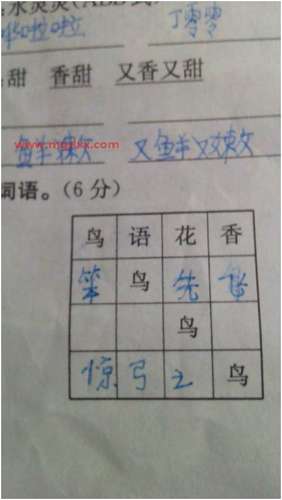 水灵灵(ABB
哗啦啦 丁零零
甜 香甜 又香又甜
鲜嫩 又鲜又嫩
词语。(6分)
鸟 语 花 香
笨 鸟 先 飞
鸟
惊 弓 之 鸟